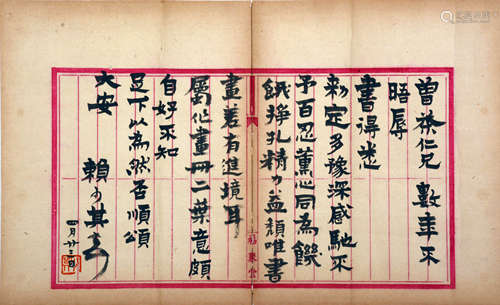 仁兄 數年不
晤辱
書得悉
定多豫深感馳不
予百忍薰心同為饑
餓掙扎精力益頹唯書
畫差有進境耳
屬作畫冊二葉意頗
自好不知
足下以為然否順頌
大安 賴少其
四月廿三日